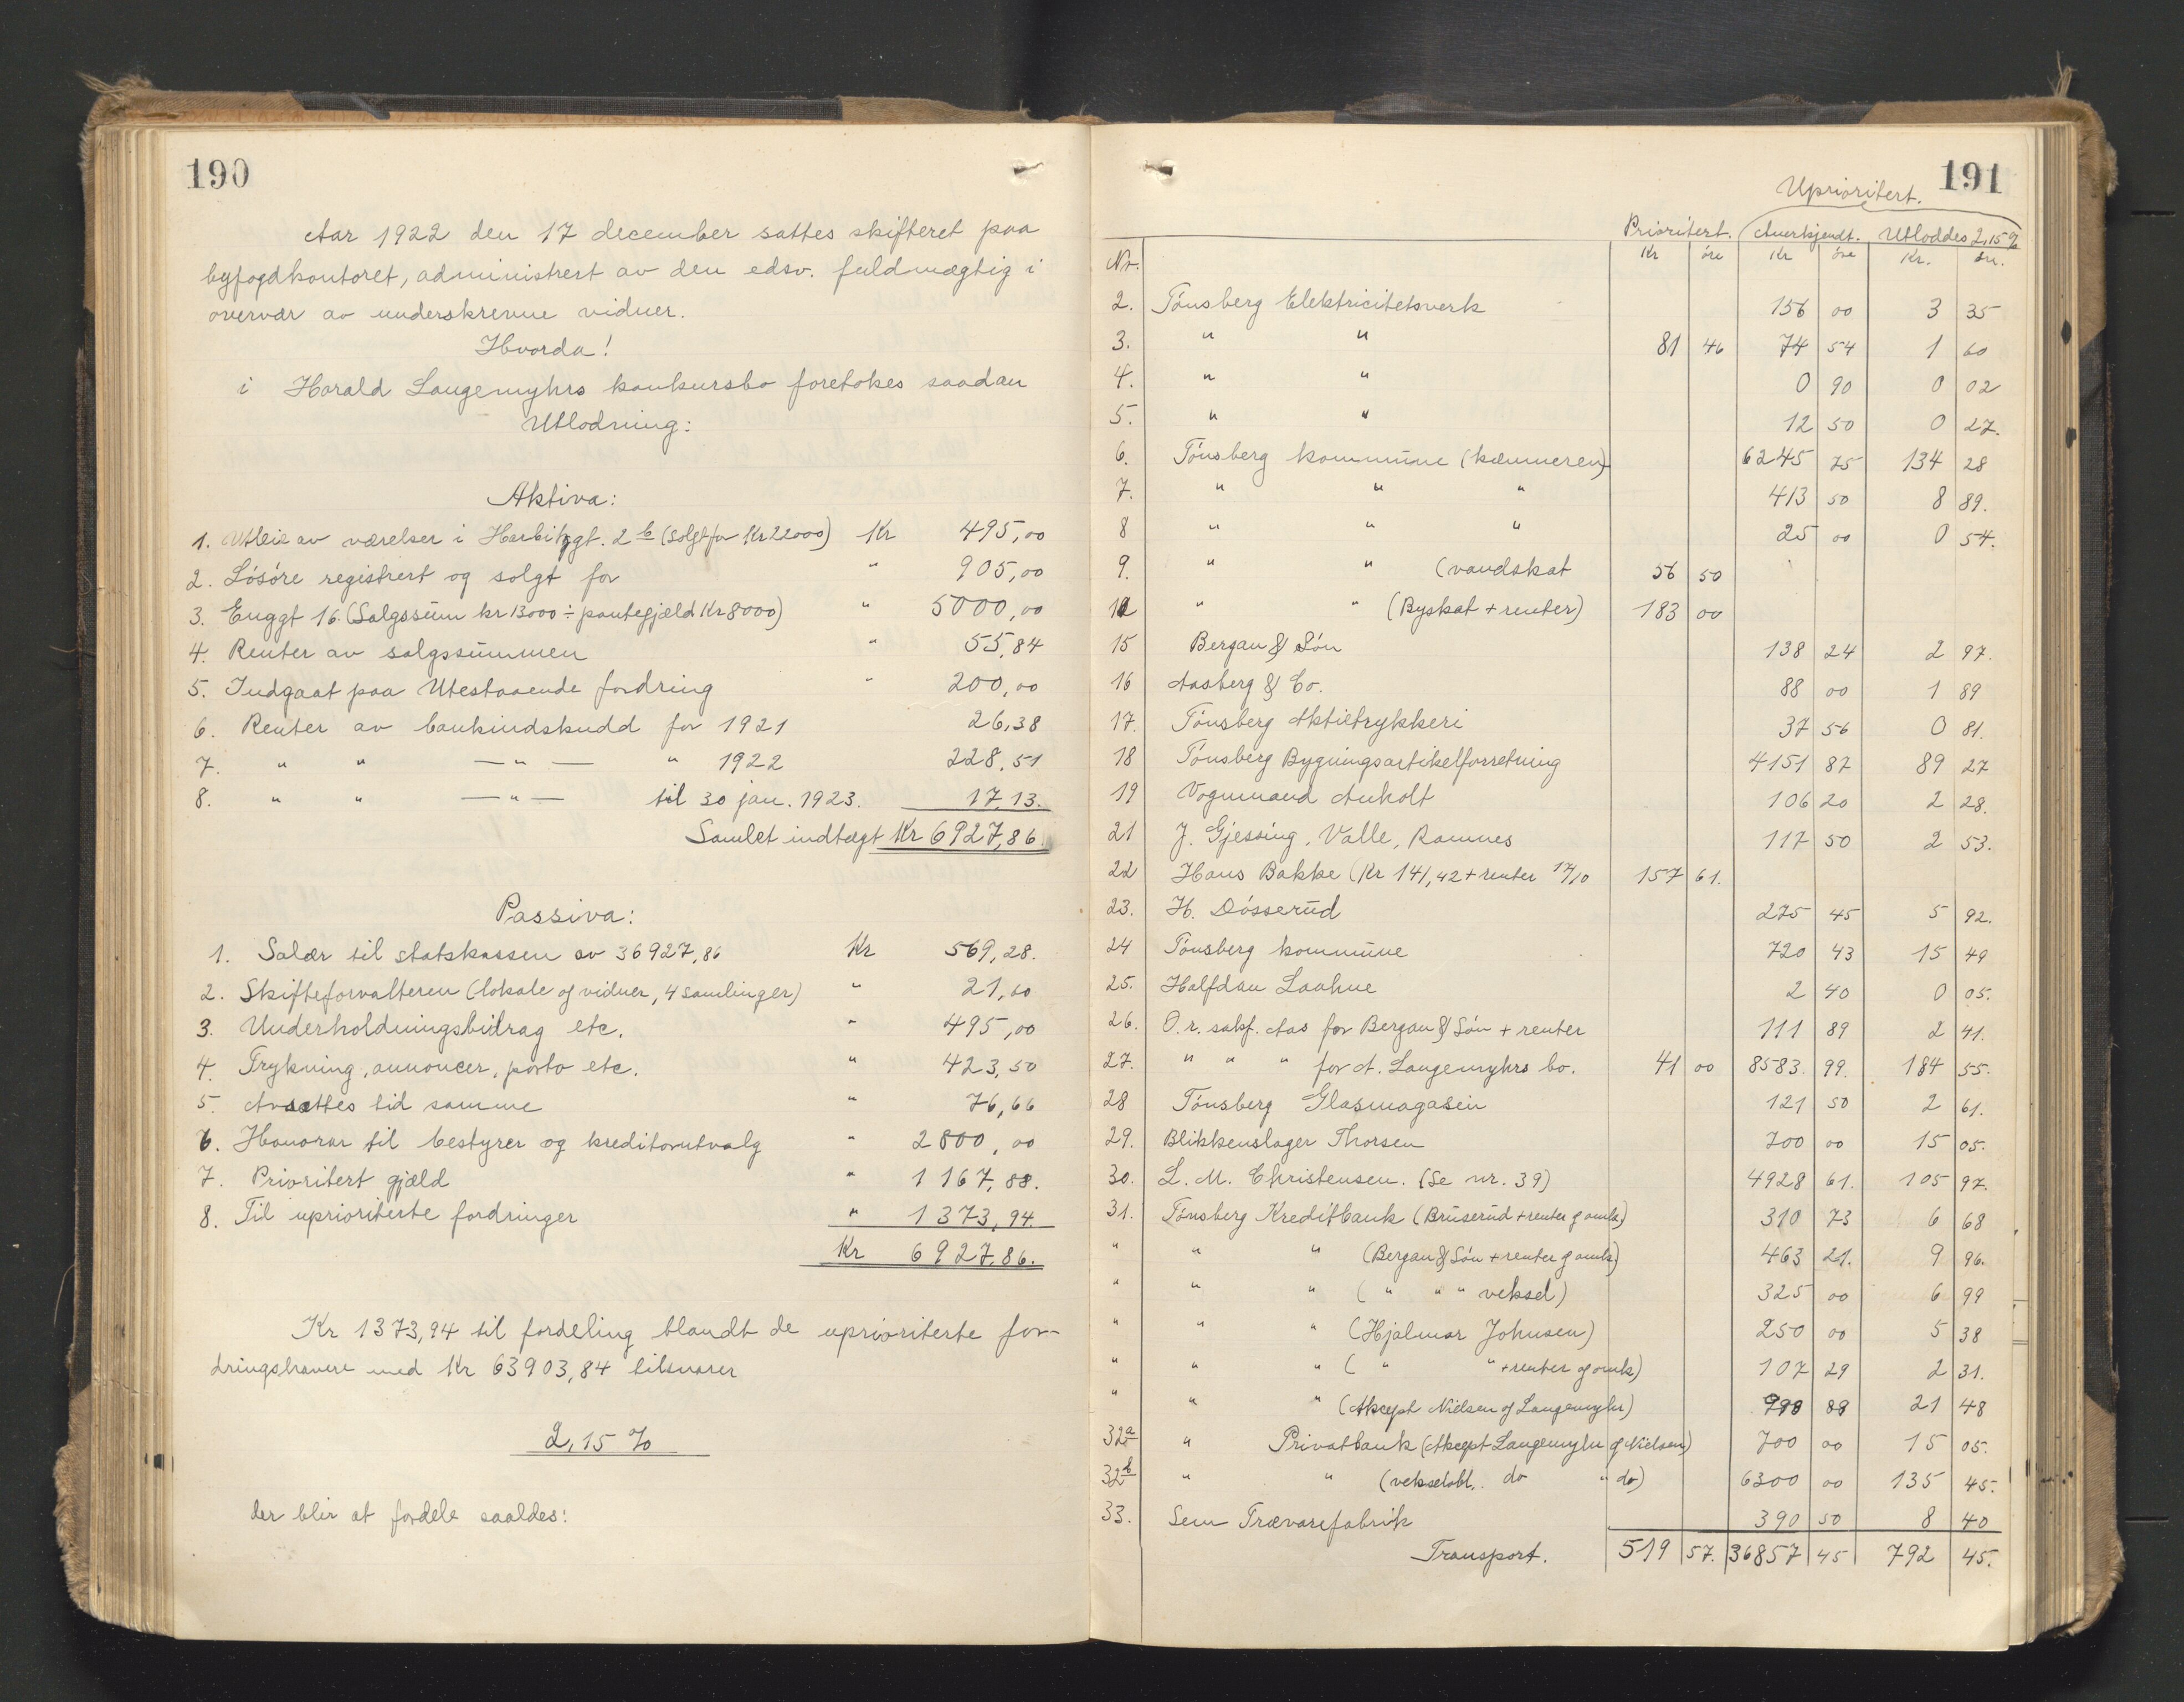 190
Aar 1922 den 17 december sattes skifteret paa
byfogdkontoret, administrert av den edsv. fuldmægtig i
overvær av underskrevne vidner.
Hvorda!
i Harald Langemyhrs konkursbo foretokes saadan
Utlodning:
Aktiva:
1. Utleie av værelser i Harbitzgt. 2 b (solgt for Kr 22000) Kr 495,00
2. Løsøre registrert og solgt for " 905,00
3. Enggt 16. (Salgssum kr 13000 ÷ pantegjæld Kr 8000) " 5000,00
4. Renter av salgssummen " 55,84
5. Indgaat paa Utestaaende fordring " 200,00
6. Renter av bankindskudd for 1921 26,38
7. " " —"— " 1922 228,51
8. " " —"— til 30 jan. 1923. 17,13.
Samlet indtægt Kr 6927,86.
Passiva:
1. Salær til statskassen av 36927,86 Kr 569,28.
2. Skifteforvalteren (lokale og vidner, 4 samlinger) " 21,60
3. Underholdningsbidrag etc. " 495,00
4. Trykning, annoncer, porto etc. " 423,50
5. Avsættes tid samme " 76,66
6. Honorar til bestyrer og kreditorutvalg " 2800,00
7. Prioritert gjæld " 1167,88.
8. Til uprioriterte fordringer " 1373,94.
Kr 6927,86.
Kr 1373,94 til fordeling blandt de uprioriterte for-
dringshavere med Kr 63903,84 tilsvarer
2,15 %
der blir at fordele saaldes:
191
Uprioritert.
Prioritert. Anerkjendt. Utloddes 2,15 %
Nr. Kr øre Kr øre Kr. øre.
2. Tønsberg Elektricitetsverk 156 00 3 35
3. " " 81 46 74 54 1 60
4. " " 0 90 0 02
5. " " 12 50 0 27.
6. Tønsberg kommune (kæmneren) 6245 75 134 28
7. " " " 413 50 8 89.
8 " " " 25 00 0 54.
9. " " (vandskat 56 50
" " (Byskat + renter) 183 00
15 Bergan & Søn 138 24 2 97.
16 Aasberg & Co. 88 00 1 89
17. Tønsberg Aktietrykkeri 37 56 0 81.
18 Tønsberg Bygningsartikelforretning 4151 87 89 27
19 Vognmand Anholt 106 20 2 28.
21 J. Gjessing, Valle, Ramnes 117 50 2 53.
22 Hans Bakke (Kr 141,42 + renter 17/10 157 61.
23. H. Døsserud 275 45 5 92.
24 Tønsberg kommune 720 43 15 49
25. Halfdan Laahne 2 40 0 05.
26. O.r. sakf. Aas for Bergan & Søn + renter 111 89 2 41.
27. " " " for A. Langemyhrs bo. 41 00 8583. 99. 184 55.
28 Tønsberg Glasmagasin 121 50 2 61.
29. Blikkenslager Thorsen 700 00 15 05.
30. L. M. Christensen. (Se nr. 39) 4928 61. 105 97.
31. Tønsberg Kreditbank (Bruserud + renter g omk) 310 73 6 68
" " " (Bergan & Søn + renter g omk) 463 21. 9 96.
" " " ( " " " veksel) 325 00 6 99
" " " (Hjalmar Johnsen) 250 00 5 38
" " " ( " " + renter g omk) 107 29 2 31.
" " " (Akcept Nielsen og Langemyhr) 21 48
32a " Privatbank (Akcept Langemyhr og Nielsen) 700 00 15 05.
32b " " (vekselobl. do " do) 6300 00 135 45.
33. Sem Trævarefabrik 390 50 8 40
Transport. 519 57. 36857 45 792 45.